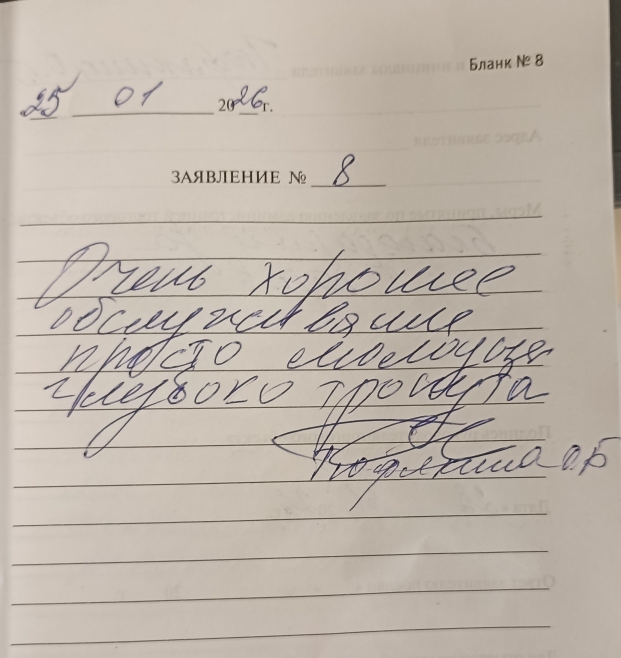 Бланк № 8
25 01 2026 г.
ЗАЯВЛЕНИЕ № 8
Очень хорошее
обслуживание
просто молодцы
глубоко тронута
О.Б